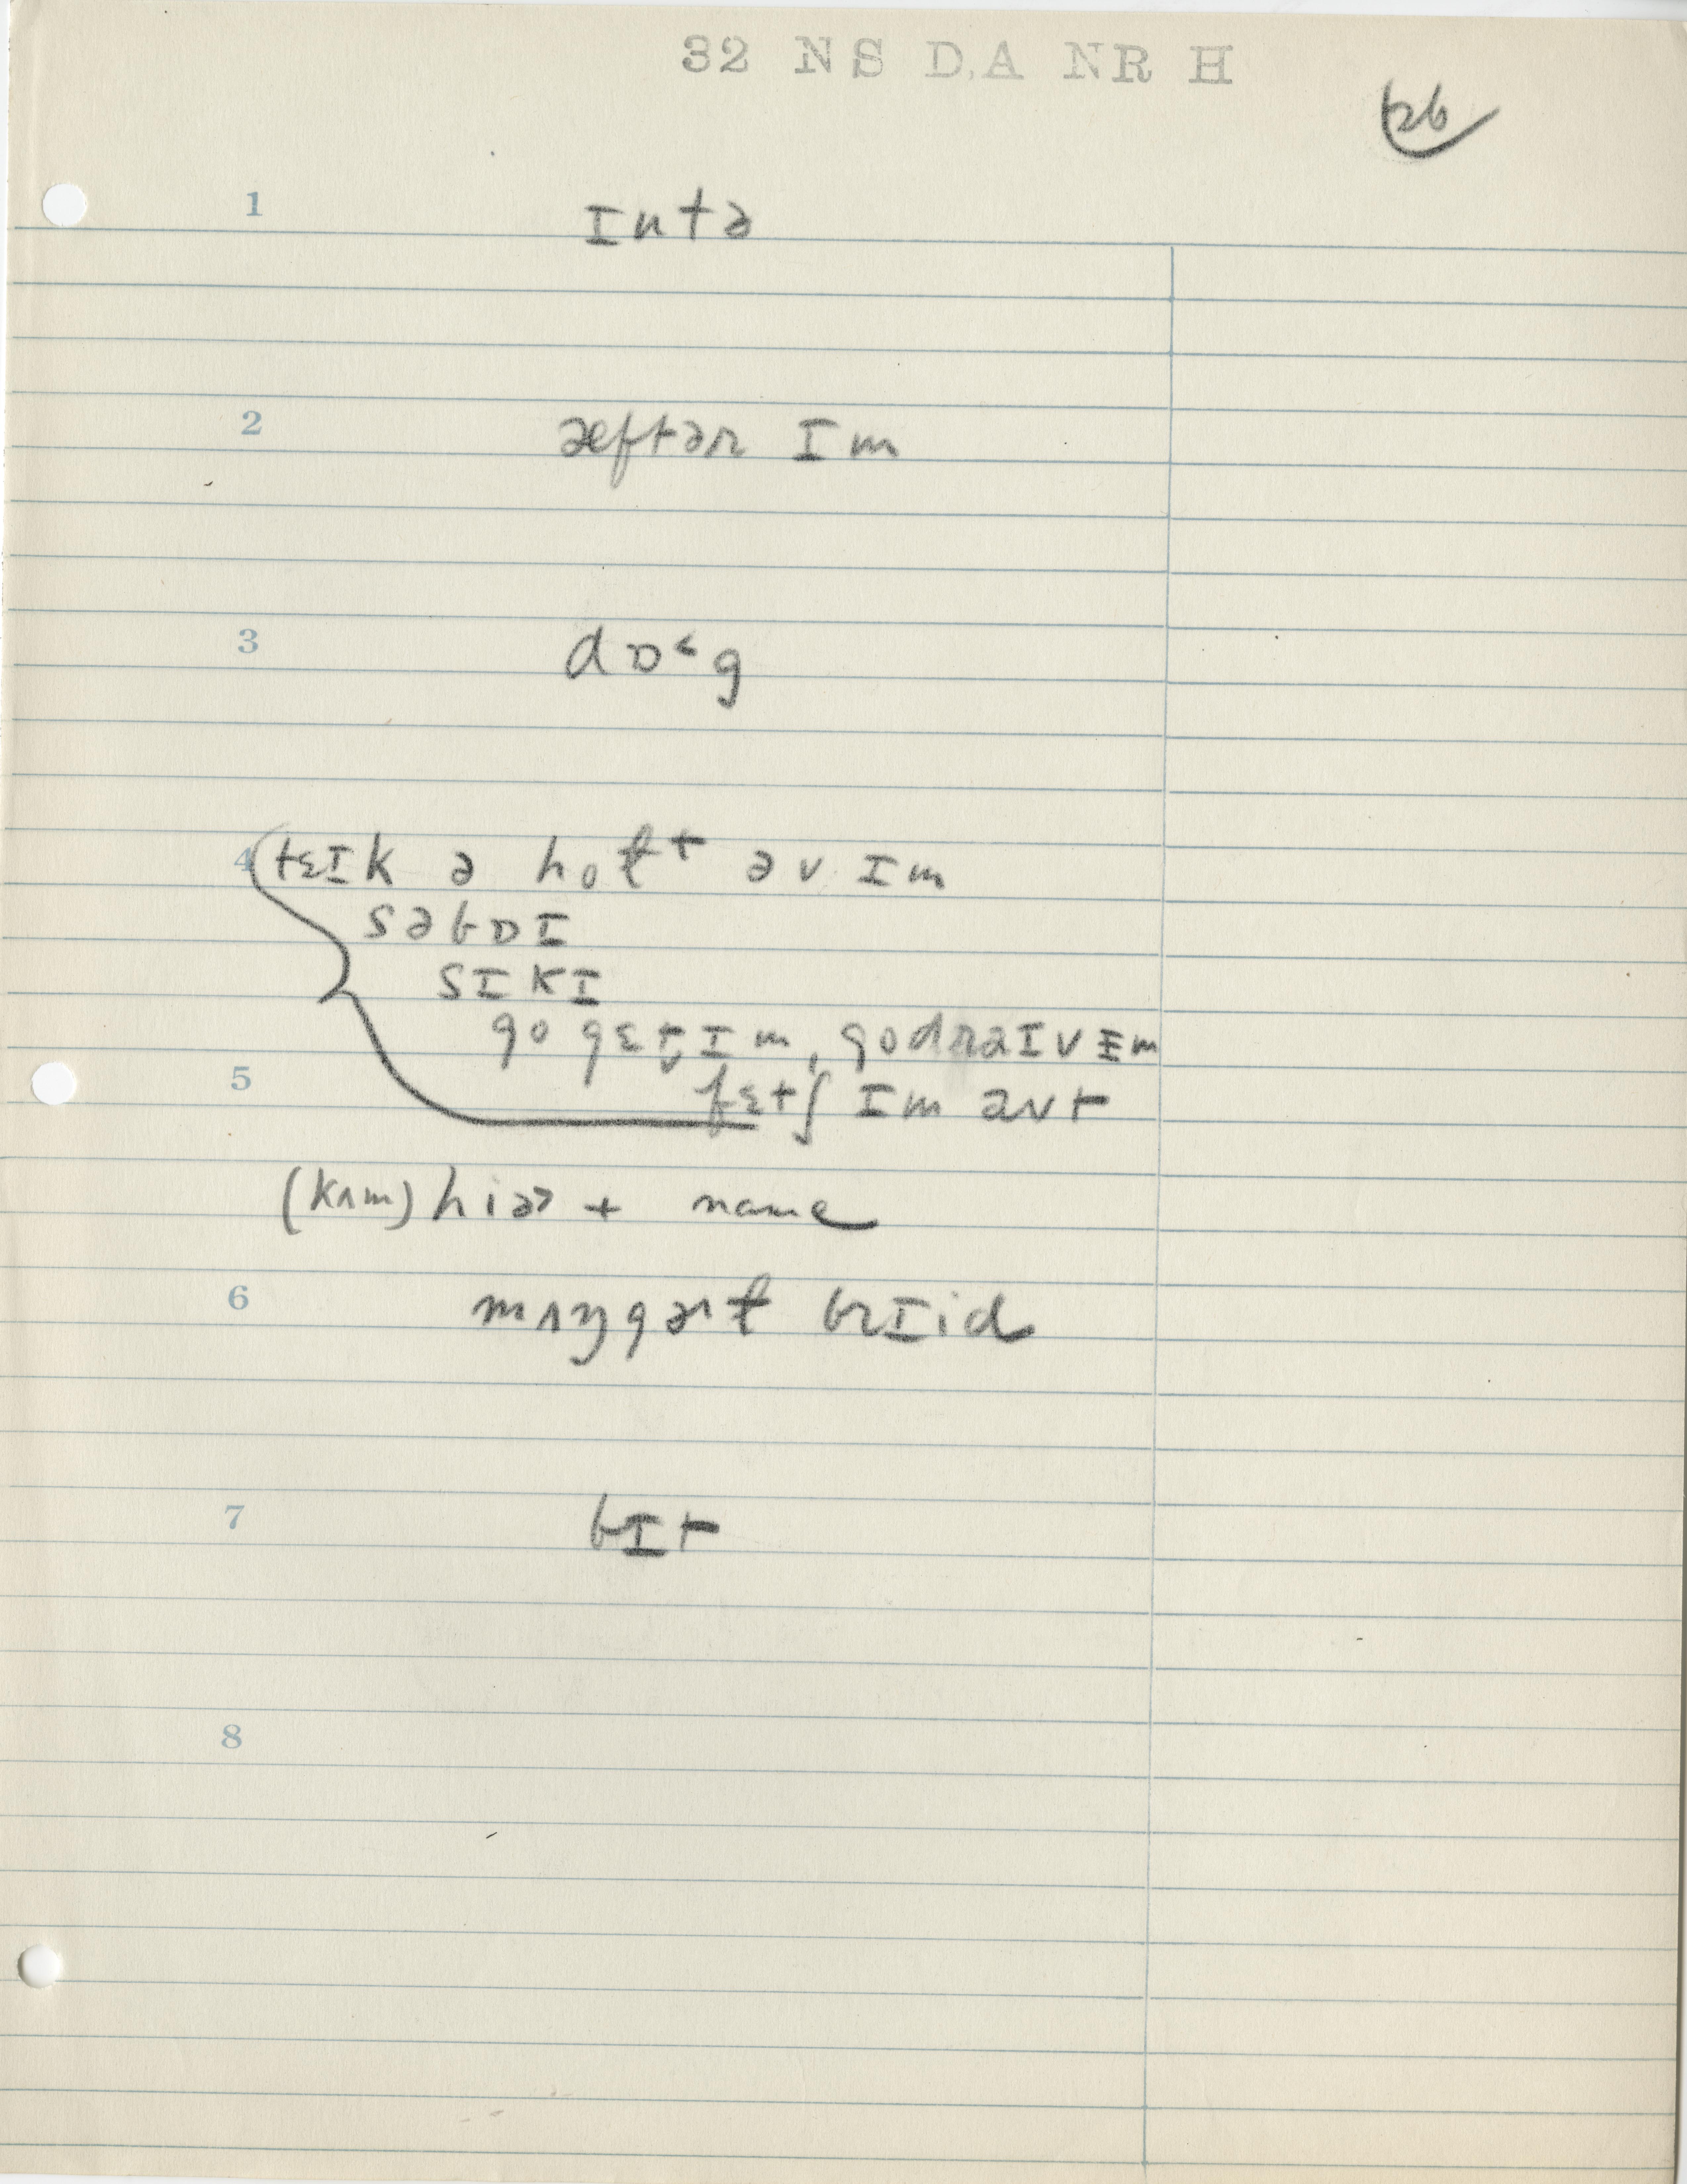 32 NS D,A NR H
26
1 ɪntə
2 æftər ɪm
3 dɒ˂g
4 tɛɪk ə hoɫt əv ɪm
səbɒɪ
sɪkɪ
go gɛt̬ɪm, godraɪvɪm
5 fɛtʃ ɪm aʊt
(kʌm) hiɚ + name
6 mʌŋgɚɫ brɪid
7 bɪt
8